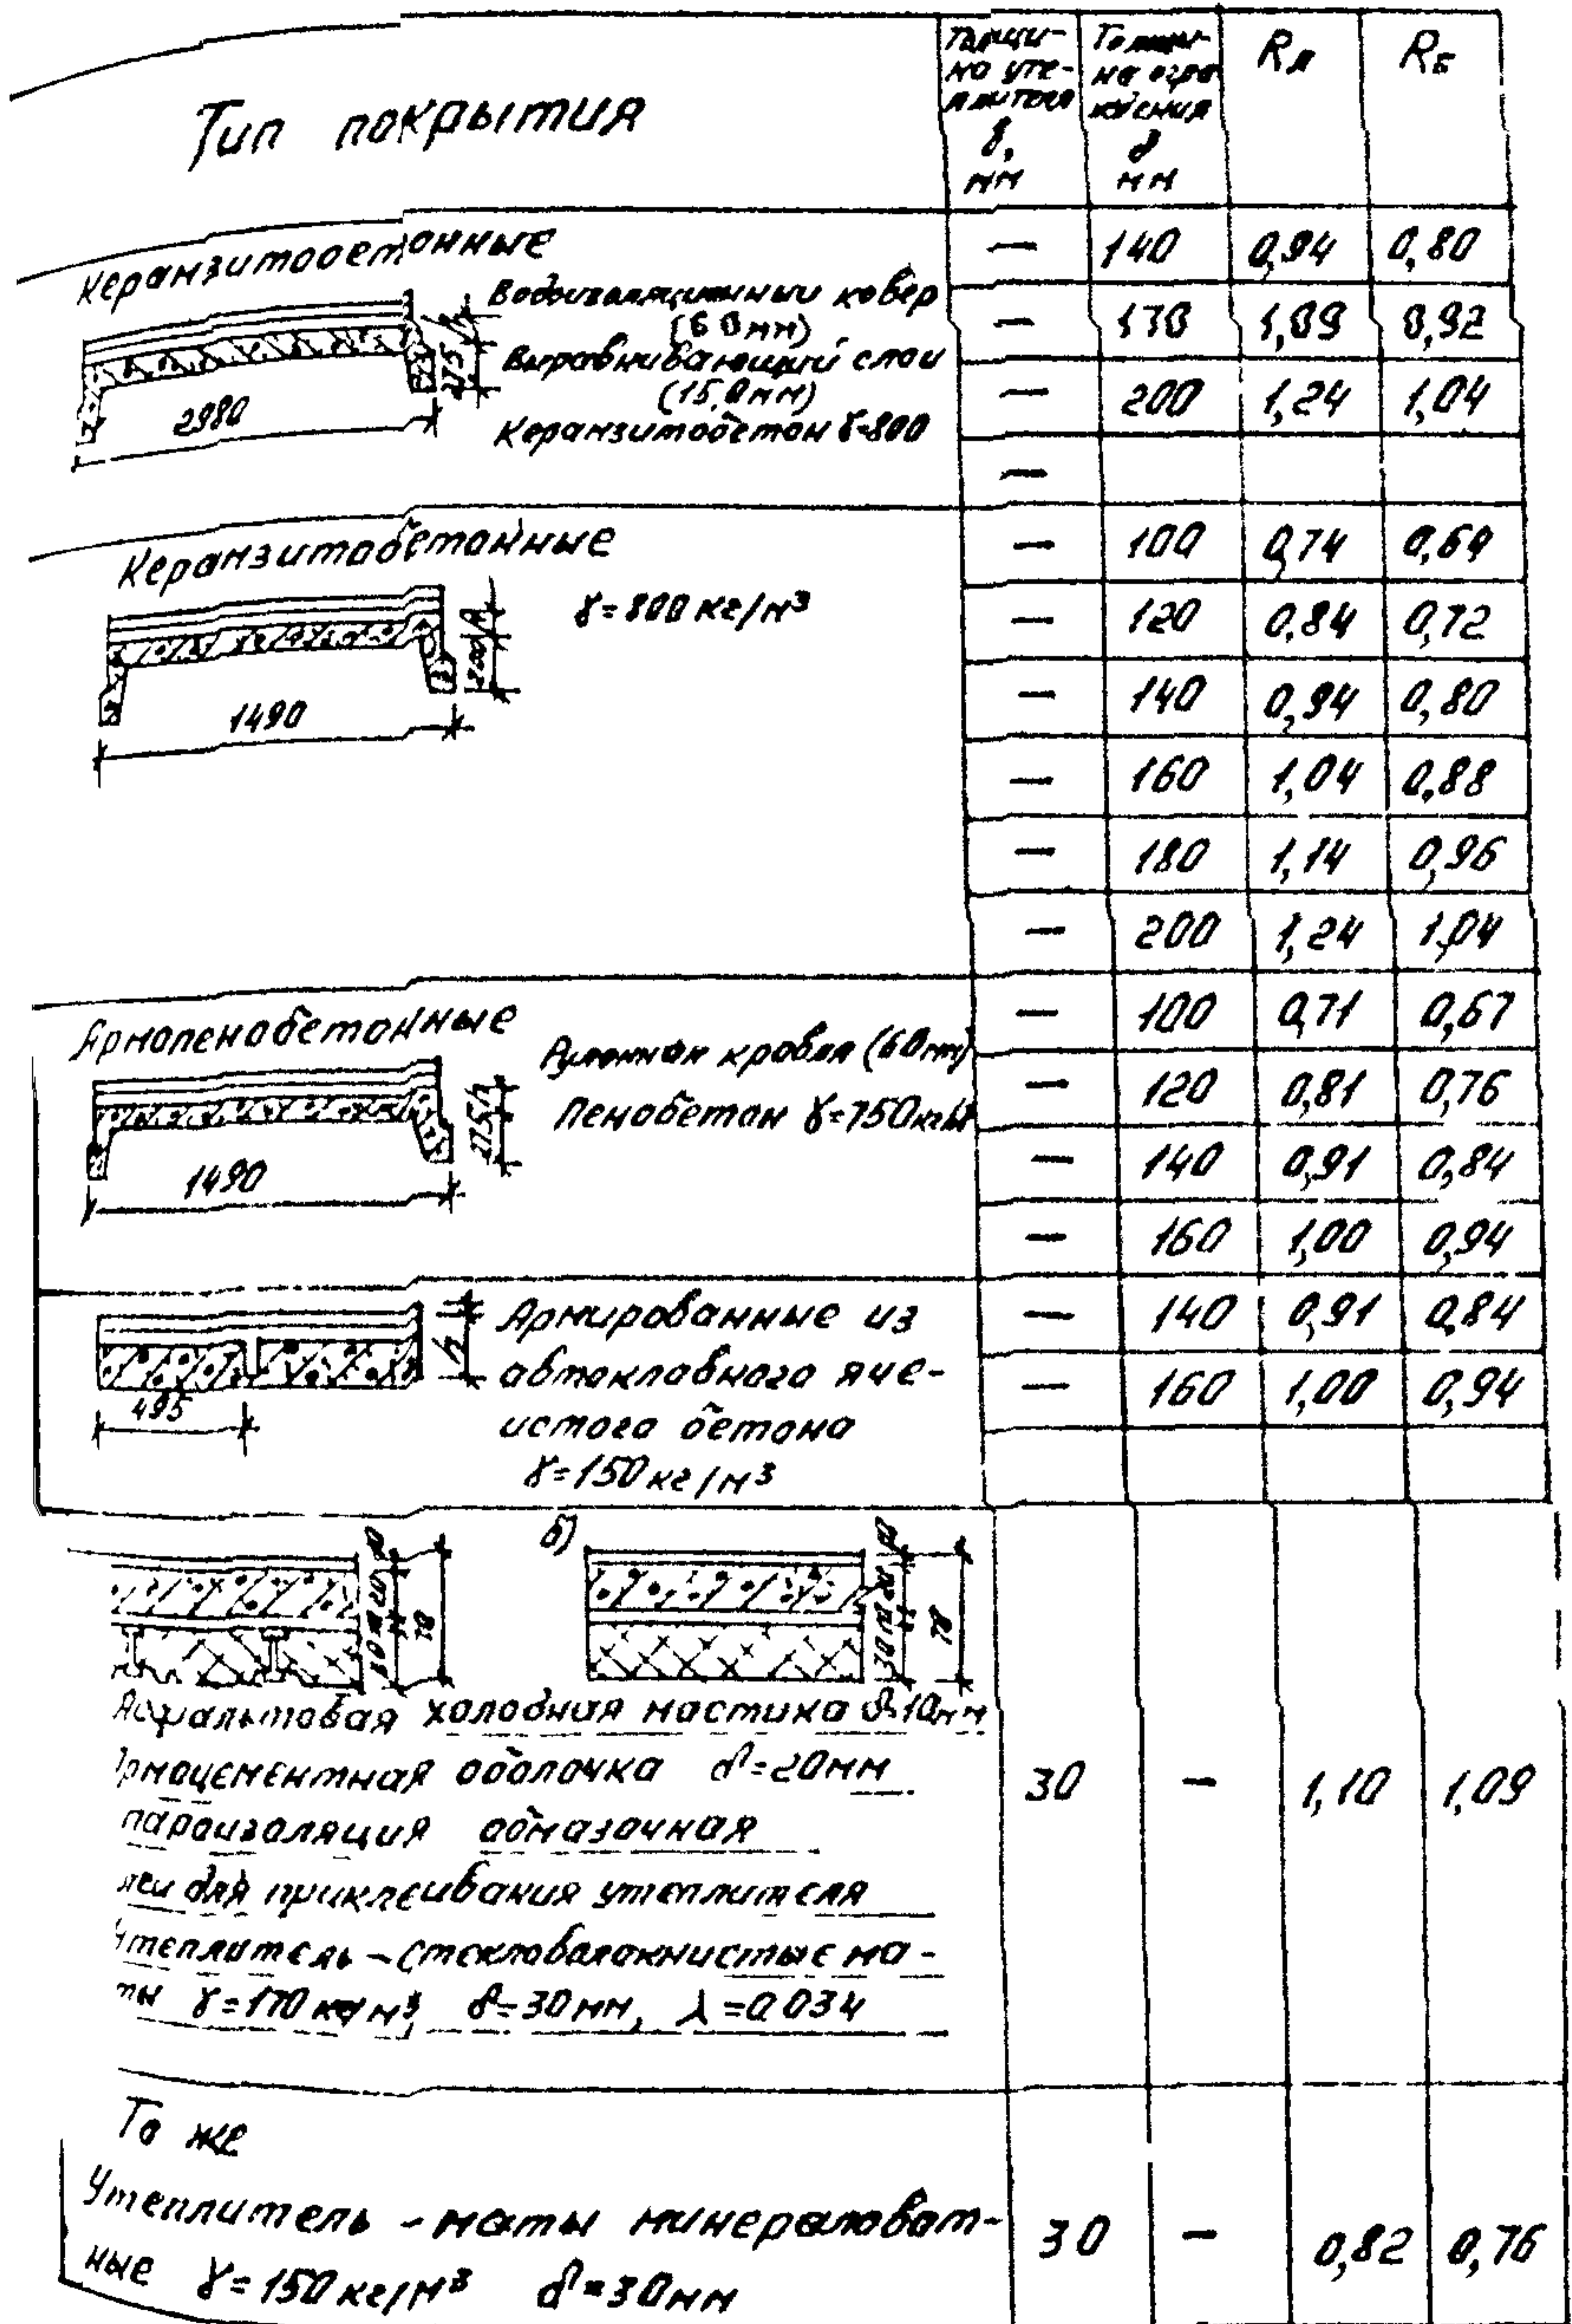 Тип покрытия
Толщи-
на уте-
плителя
δ,
мм
Толщи-
на огра
ждения
δ
мм
Rа
Rб
Керамзитобетонные
Водоизоляционный ковер
(6 0 мм)
Выравнивающий слой
(15,0 мм)
Керамзитобетон γ=800
2980
— 140 0,94 0,80
— 170 1,09 0,92
— 200 1,24 1,04
—
Керамзитобетонные
γ=800 кг/м³
1490
— 100 0,74 0,64
— 120 0,84 0,72
— 140 0,94 0,80
— 160 1,04 0,88
— 180 1,14 0,96
— 200 1,24 1,04
Армопенобетонные
Рулонная кровля (60мм)
Пенобетон γ=750кг/м³
1490
— 100 0,71 0,67
— 120 0,81 0,76
— 140 0,91 0,84
— 160 1,00 0,94
Армированные из
автоклавного яче-
истого бетона
γ=150 кг/м³
495
— 140 0,91 0,84
— 160 1,00 0,94
б)
Асфальтовая холодная мастика δ=10мм
рмоцементная оболочка δ=20мм
пароизоляция обмазочная
лей для приклеивания утеплителя
Утеплитель – стекловолокнистые ма-
ты γ=170 кг/м³, δ=30мм, λ=0.034
30 — 1,10 1,09
То же
Утеплитель – маты минераловат-
ные γ=150 кг/м³ δ=30мм
30 — 0,82 0,76